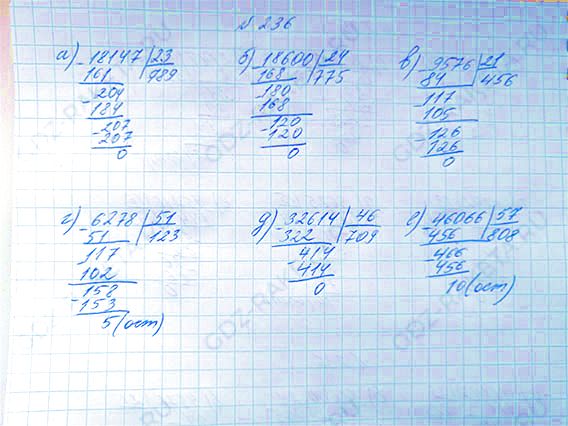 № 236
а) -18147 | 23
161 | 789
-204
184
-207
207
0
б) -18600 | 24
168 | 775
-180
168
-120
120
0
в) -9576 | 21
84 | 456
-117
105
-126
126
0
г) -6278 | 51
51 | 123
117
102
158
-153
5 (ост)
д) -32614 | 46
322 | 709
-414
414
0
е) -46066 | 57
456 | 808
-466
456
10 (ост)
GDZ-RAKETA.RU